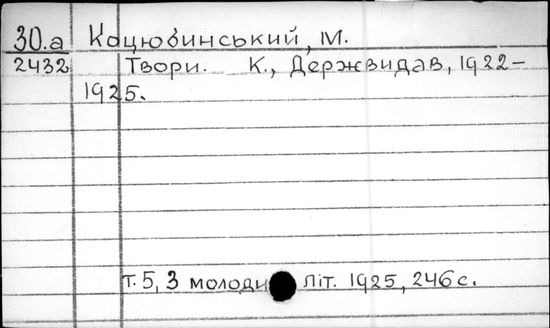 30.а Коцюбинський, М.
2432 Твори. К., Держвидав, 1922-
1925.
т. 5, З молоди літ. 1925, 246 с.